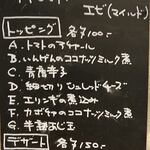 エビ(マイルド)
トッピング 各¥100.-
A. トマトのアチャール
B. いんげんのココナッツミルク煮
C. 青唐辛子
D. 細切りシュレッドチーズ
E. エリンギの煮込み
F. カボチャのココナッツミルク煮
G. 半熟あじ玉
デザート 各¥150.-